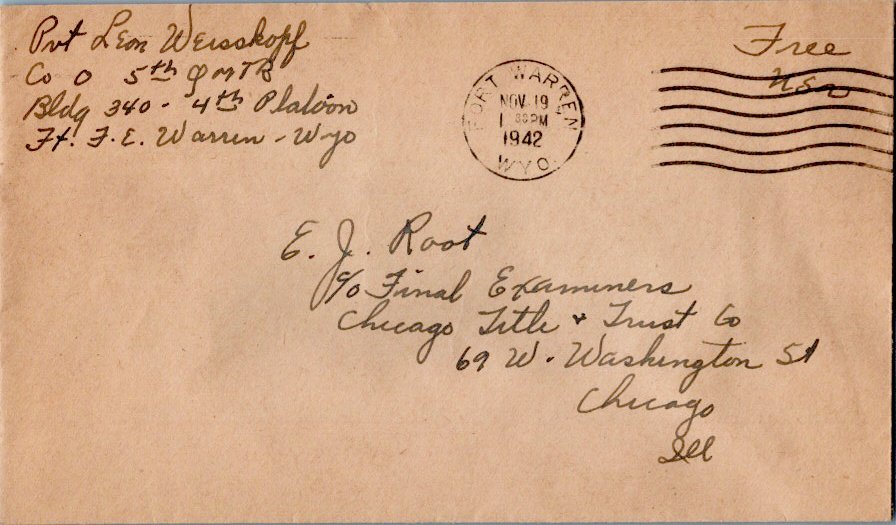 Pvt Leon Weisskopf
Co O 5th QMTR
Bldg 340 - 4th Platoon
Ft. F. E. Warren - Wyo
FORT WARREN
NOV 19
PM
1942
WYO.
Free
E. J. Root
c/o Final Examiners
Chicago Title & Trust Co
69 W. Washington St
Chicago
Ill